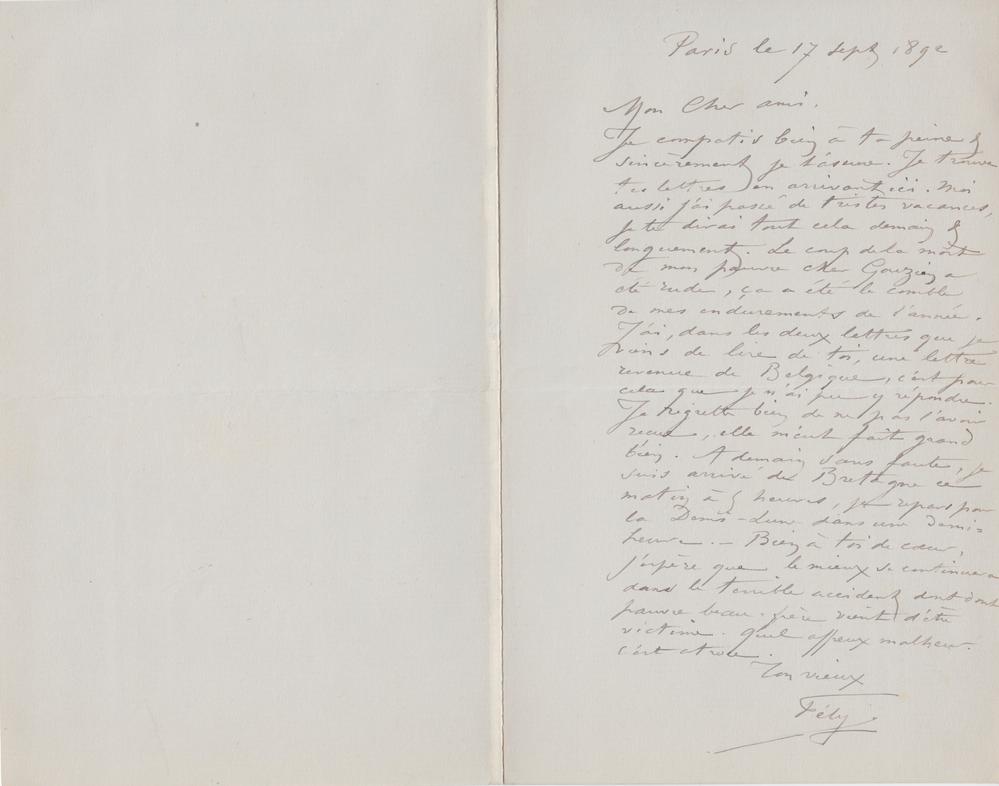 Paris le 17 sept 1892
Mon Cher ami.
Je compatis bien à ta peine &
sincèrement je t'assure. Je trouve
tes lettres en arrivant ici. Moi
aussi j'ai passé de tristes vacances,
je te dirai tout cela demain &
longuement. Le coup de la mort
de mon pauvre cher Gouzien a
été rude, ça a été le comble
de mes endurements de l'année.
J'ai, dans les deux lettres que je
viens de lire de toi, une lettre
revenue de Belgique, c'est pour
cela que je n'ai pu y répondre.
Je regrette bien de ne pas l'avoir
reçue, elle m'eut fait grand
bien. A demain sans faute, je
suis arrivé de Bretagne ce
matin à 5 heures, je repars pour
la Demi-Lune dans une demi-
heure. — Bien à toi de cœur,
j'espère que le mieux se continuera
dans le terrible accident dont
pauvre beau-frère vient d'être
victime. Quel affreux malheur.
c'est atroce.
Ton vieux
Fély